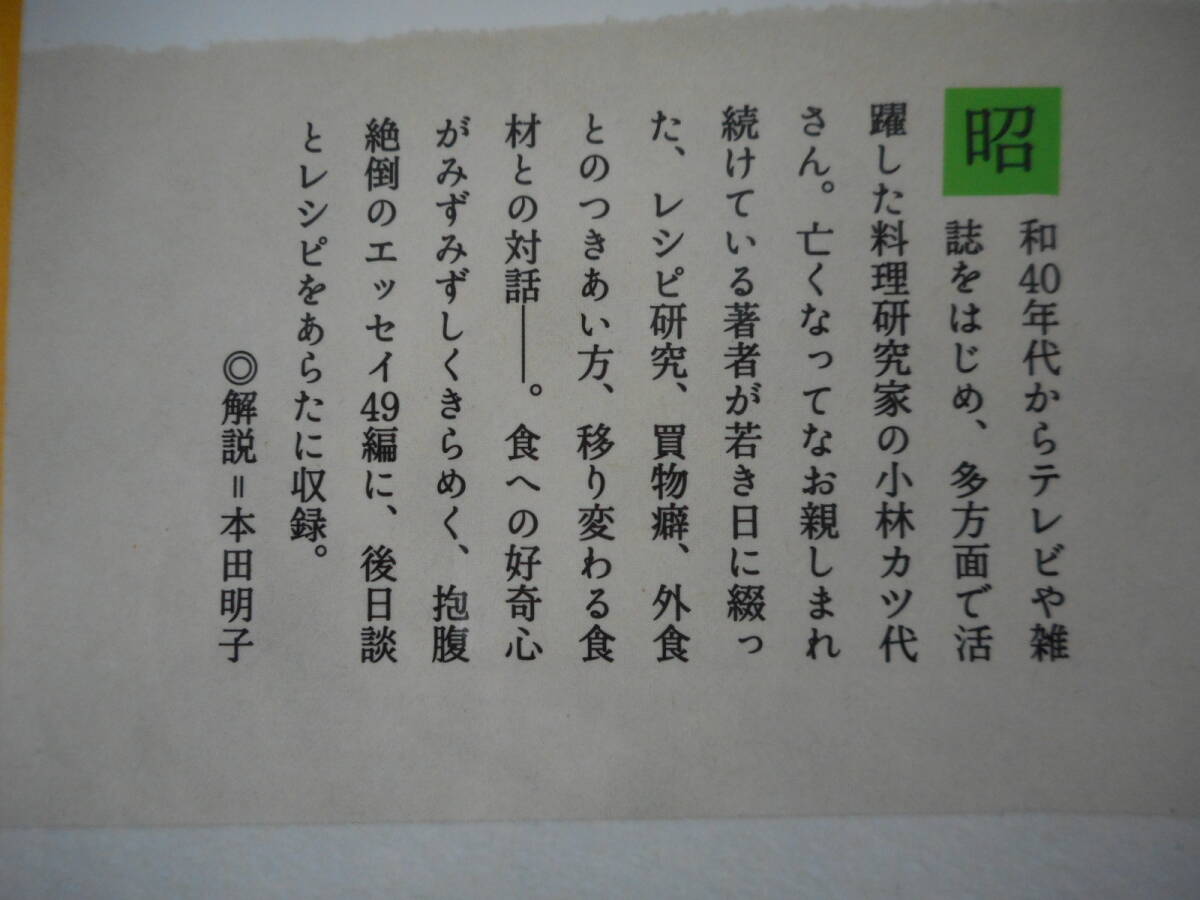 昭和40年代からテレビや雑
誌をはじめ、多方面で活
躍した料理研究家の小林カツ代
さん。亡くなってなお親しまれ
続けている著者が若き日に綴っ
た、レシピ研究、買物癖、外食
とのつきあい方、移り変わる食
材との対話――。食への好奇心
がみずみずしくきらめく、抱腹
絶倒のエッセイ49編に、後日談
とレシピをあらたに収録。
◎解説=本田明子